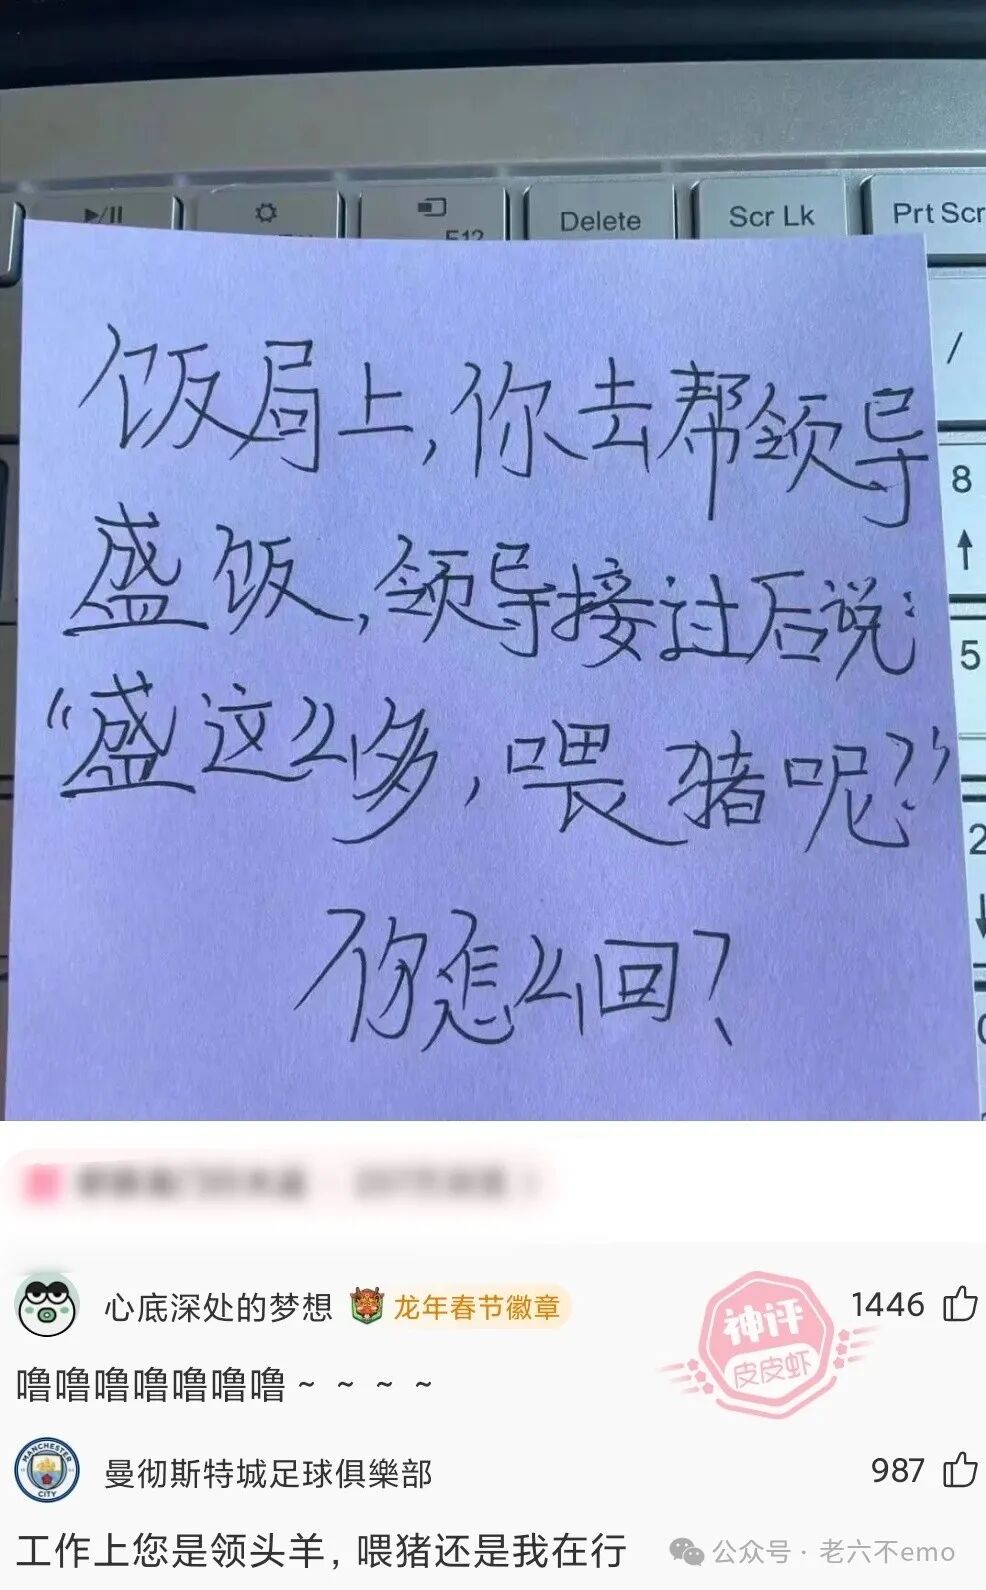 Delete
Scr Lk
Prt Scr
F12
/
8
5
2
饭局上,你去帮领导
盛饭,领导接过后说:
“盛这么多,喂猪呢?”
你怎么回?
心底深处的梦想
龙年春节徽章
神评
皮皮虾
1446
噜噜噜噜噜噜噜~ ~ ~ ~
MANCHESTER
CITY
曼彻斯特城足球俱樂部
987
工作上您是领头羊,喂猪还是我在行
公众号·老六不emo